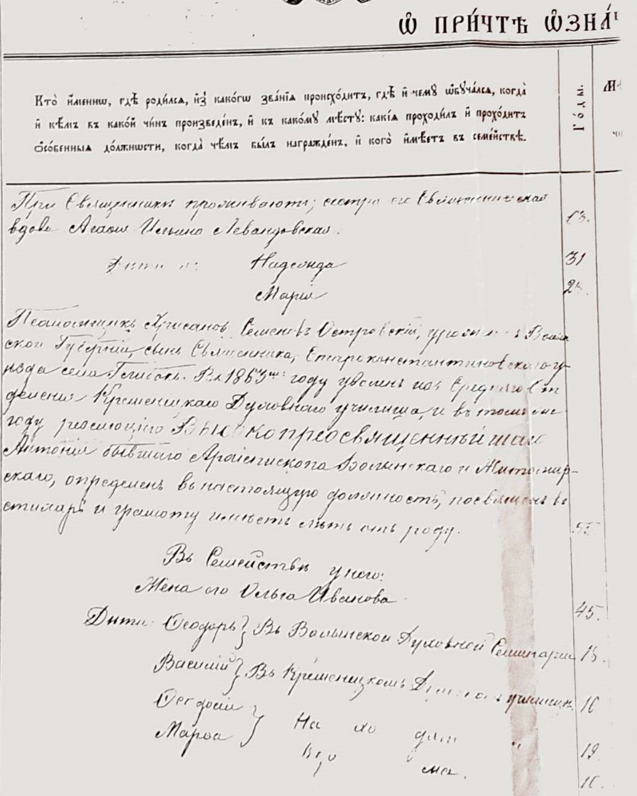 Ѡ ПРИ́ЧТѢ ѠЗНА́
Кто̀ и҆́менно, гдѣ̀ роди́лсѧ, и҆з̾ како́гѡ зва́нїѧ происхо́дитъ, гдѣ̀ и҆ чемꙋ̀ ѡ҆бꙋча́лсѧ, когда̀
и҆ кѣ́мъ въ како́й чи́нъ произведе́нъ, и҆ къ како́мꙋ мѣ́стꙋ: какі̑ѧ проходи́лъ и҆ прохо́дитъ
ѻ҆со́бенныѧ до́лжности, когда̀ чѣ́мъ бы́лъ награжде́нъ, и҆ кого̀ и҆мѣ́етъ въ семе́йствѣ.
Го́ды.
При Священникѣ проживаютъ; сестра его Священническая
вдова Агафія Ильина Левандовская.
63.
Дѣти Надежда
31
Марія
Псаломщикъ Семеновъ Островскій,
ской Губерніи, сынъ Священника, Староконстантиновскаго у-
ѣзда села Въ 1863мъ году уволенъ изъ Средняго От
деленія Кременецкаго Духовнаго училища, и въ томъ же
году резолюціею Высокопреосвященнѣйшаго
Антонія бывшаго Архіепископа Волынскаго и Житомир-
скаго, определенъ въ настоящую должность, посвященъ въ
стихарь и грамоту имѣетъ лѣтъ отъ роду.
Въ Семействѣ у него:
Жена его Ольга Иванова
45.
Дѣти: Ѳеодоръ } Въ Волынской Духовной Семинаріи
Василій } Въ Кременецкомъ училищѣ
16
Ѳеодосій
Марѳа